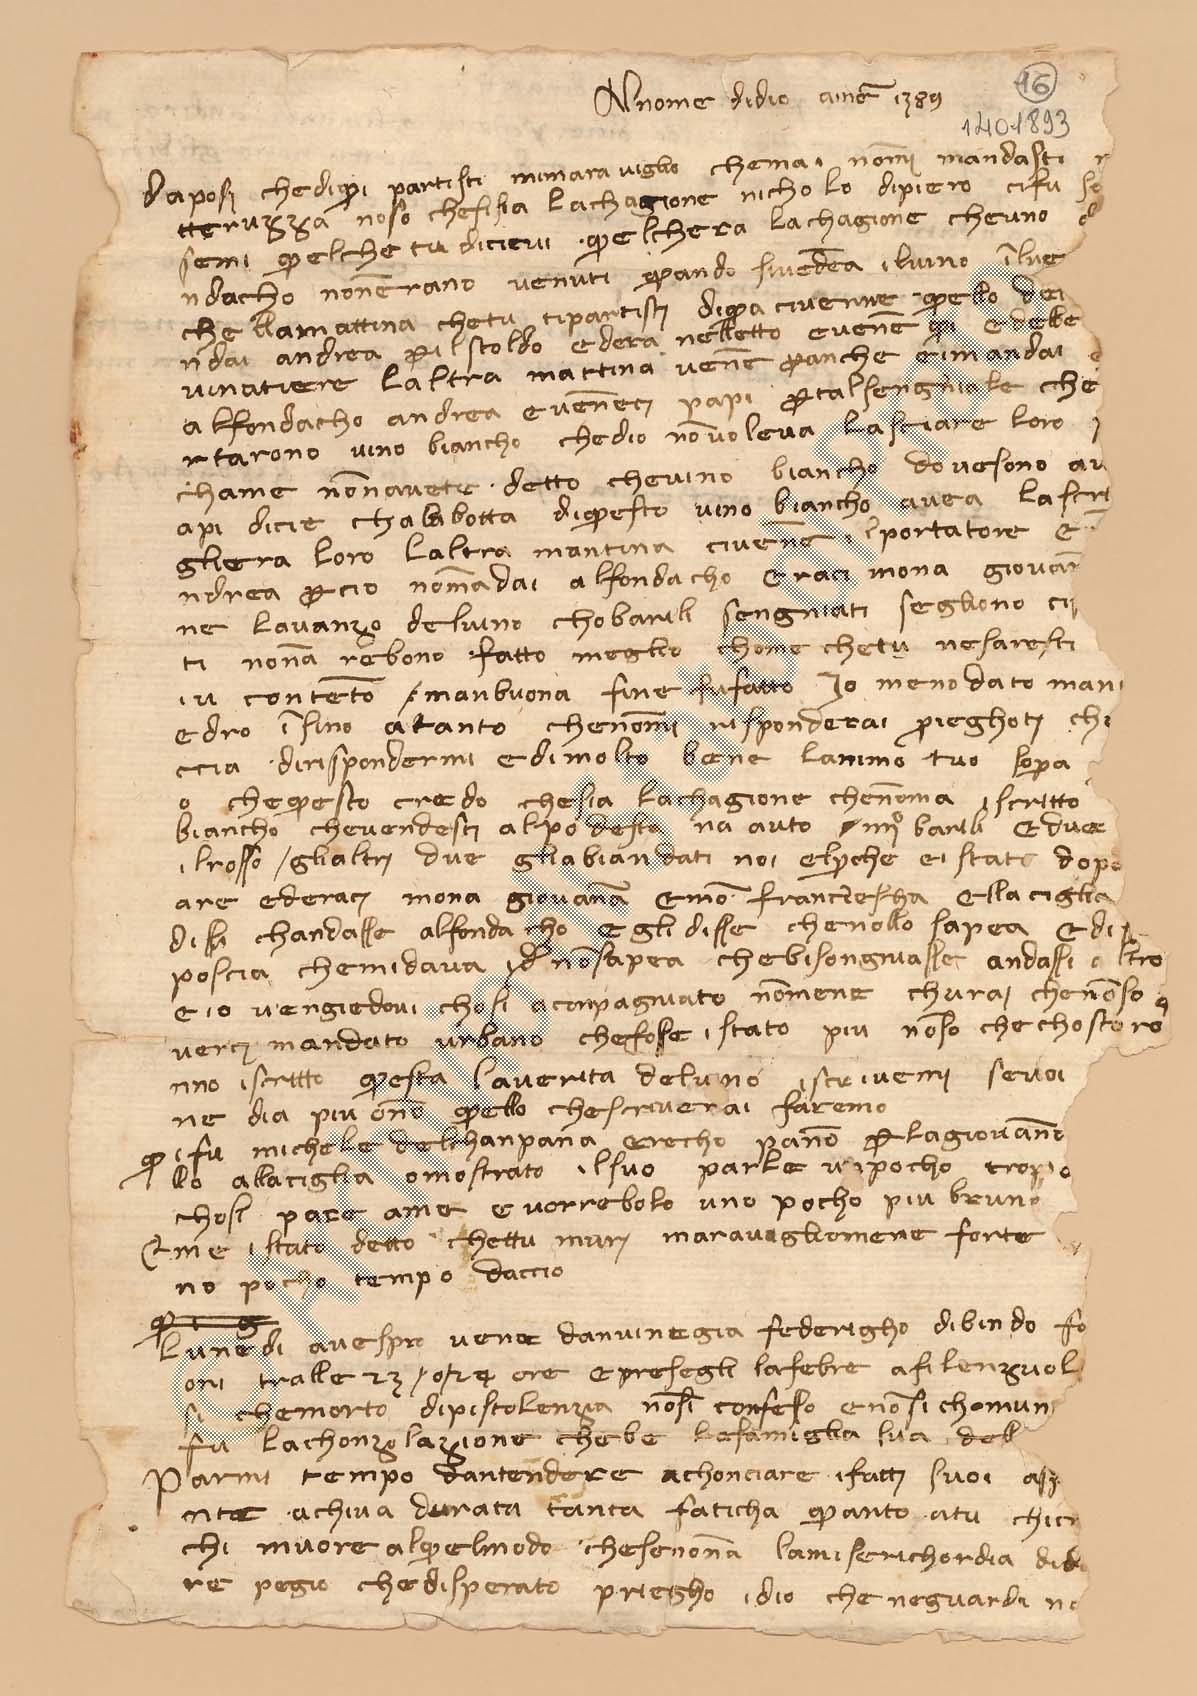 Al nome didio amē 1389
16
1401893
daposi chediqui partisti mimaraviglio chemai nōmi mandasti
tteruzza noso chesisia lachagione nicholo dipiero cifu
semi quelchetu dicievi quelchera lachagione cheuno
ndacho nonerano venuti quando sivedea iluino ilve
che llamattina chetu tipartisti diqua civenne quello dei
ndai andrea pilstoldo edera nelletto evenē qui edebbe
vinatiere laltra mattina venē panche eimandai
alfondacho andrea evēneci papi ptalsengniale che
rtarono vino biancho chedio nōvoleva lasciare loro
chame nōnavete detto chevino biancho dovesono av
api dicie chalabotta diquesto vino biancho avea lascit
gliera loro laltra mantina civenē ilportatore e
ndrea pcio nōmādai alfondacho eraci mona giovān
ne lavanzo deluino chobarili sengniati segliono ci
ti nonā rebono fatto meglio chome chetu nesaresti
iu contēto / manbuona fine fufatto Io menodato mani
edro īsino atanto chenōmi risponderai prieghoti chi
ccia dirispondermi edimolto bene lanimo tuo sopa
o chequesto credo chesia lachagione chenōma iscritto
biancho chevendesti alpodesta na auto iiij° barili edue
ilrosso / glialtri due gliabiandati noi elpche ei stato dopo
are ederaci mona giovanā emō franciescha ella ciglia
dissi chandasse alfondacho egli disse chenollo sapea edi
poscia chemidava id nōsapea chebisongniasse andassi altro
eio vengiedovi chosi aconpagniato nōmene churai chenōso
verci mandato urbano cheffosse istato piu nōso chechostoro
nno iscritto questa laverita deluino iscrivemi sevoi
ne dia piu ōnō quello chescriverai faremo
qui fu michele delchanpana erecho panō plagiovānō
llo allaciglia omostrato ilsuo parle unpocho tropo
chosi pare ame evorrebolo uno pocho piu bruno
Eme istato detto chettu muri maravigliomene forte
no pocho tempo daccio
qui g
lunedi avespro venē danvinegia federigho dibindo fo
ori tralle 23 / o / 24 ore epresegli lafebre afilenzuol
si chemorto dipistolenzia nōsi confeso enōsi chomun
fu lachonzolazione chebe lafamiglia sua del
Parmi tempo dantendere achonciare ifatti suoi
nte achiva durata tanta faticha quanto atu
chi muore alquelmodo chesenonā lamiserichordia did
re pegio chedisperato priegho idio che neguardi no